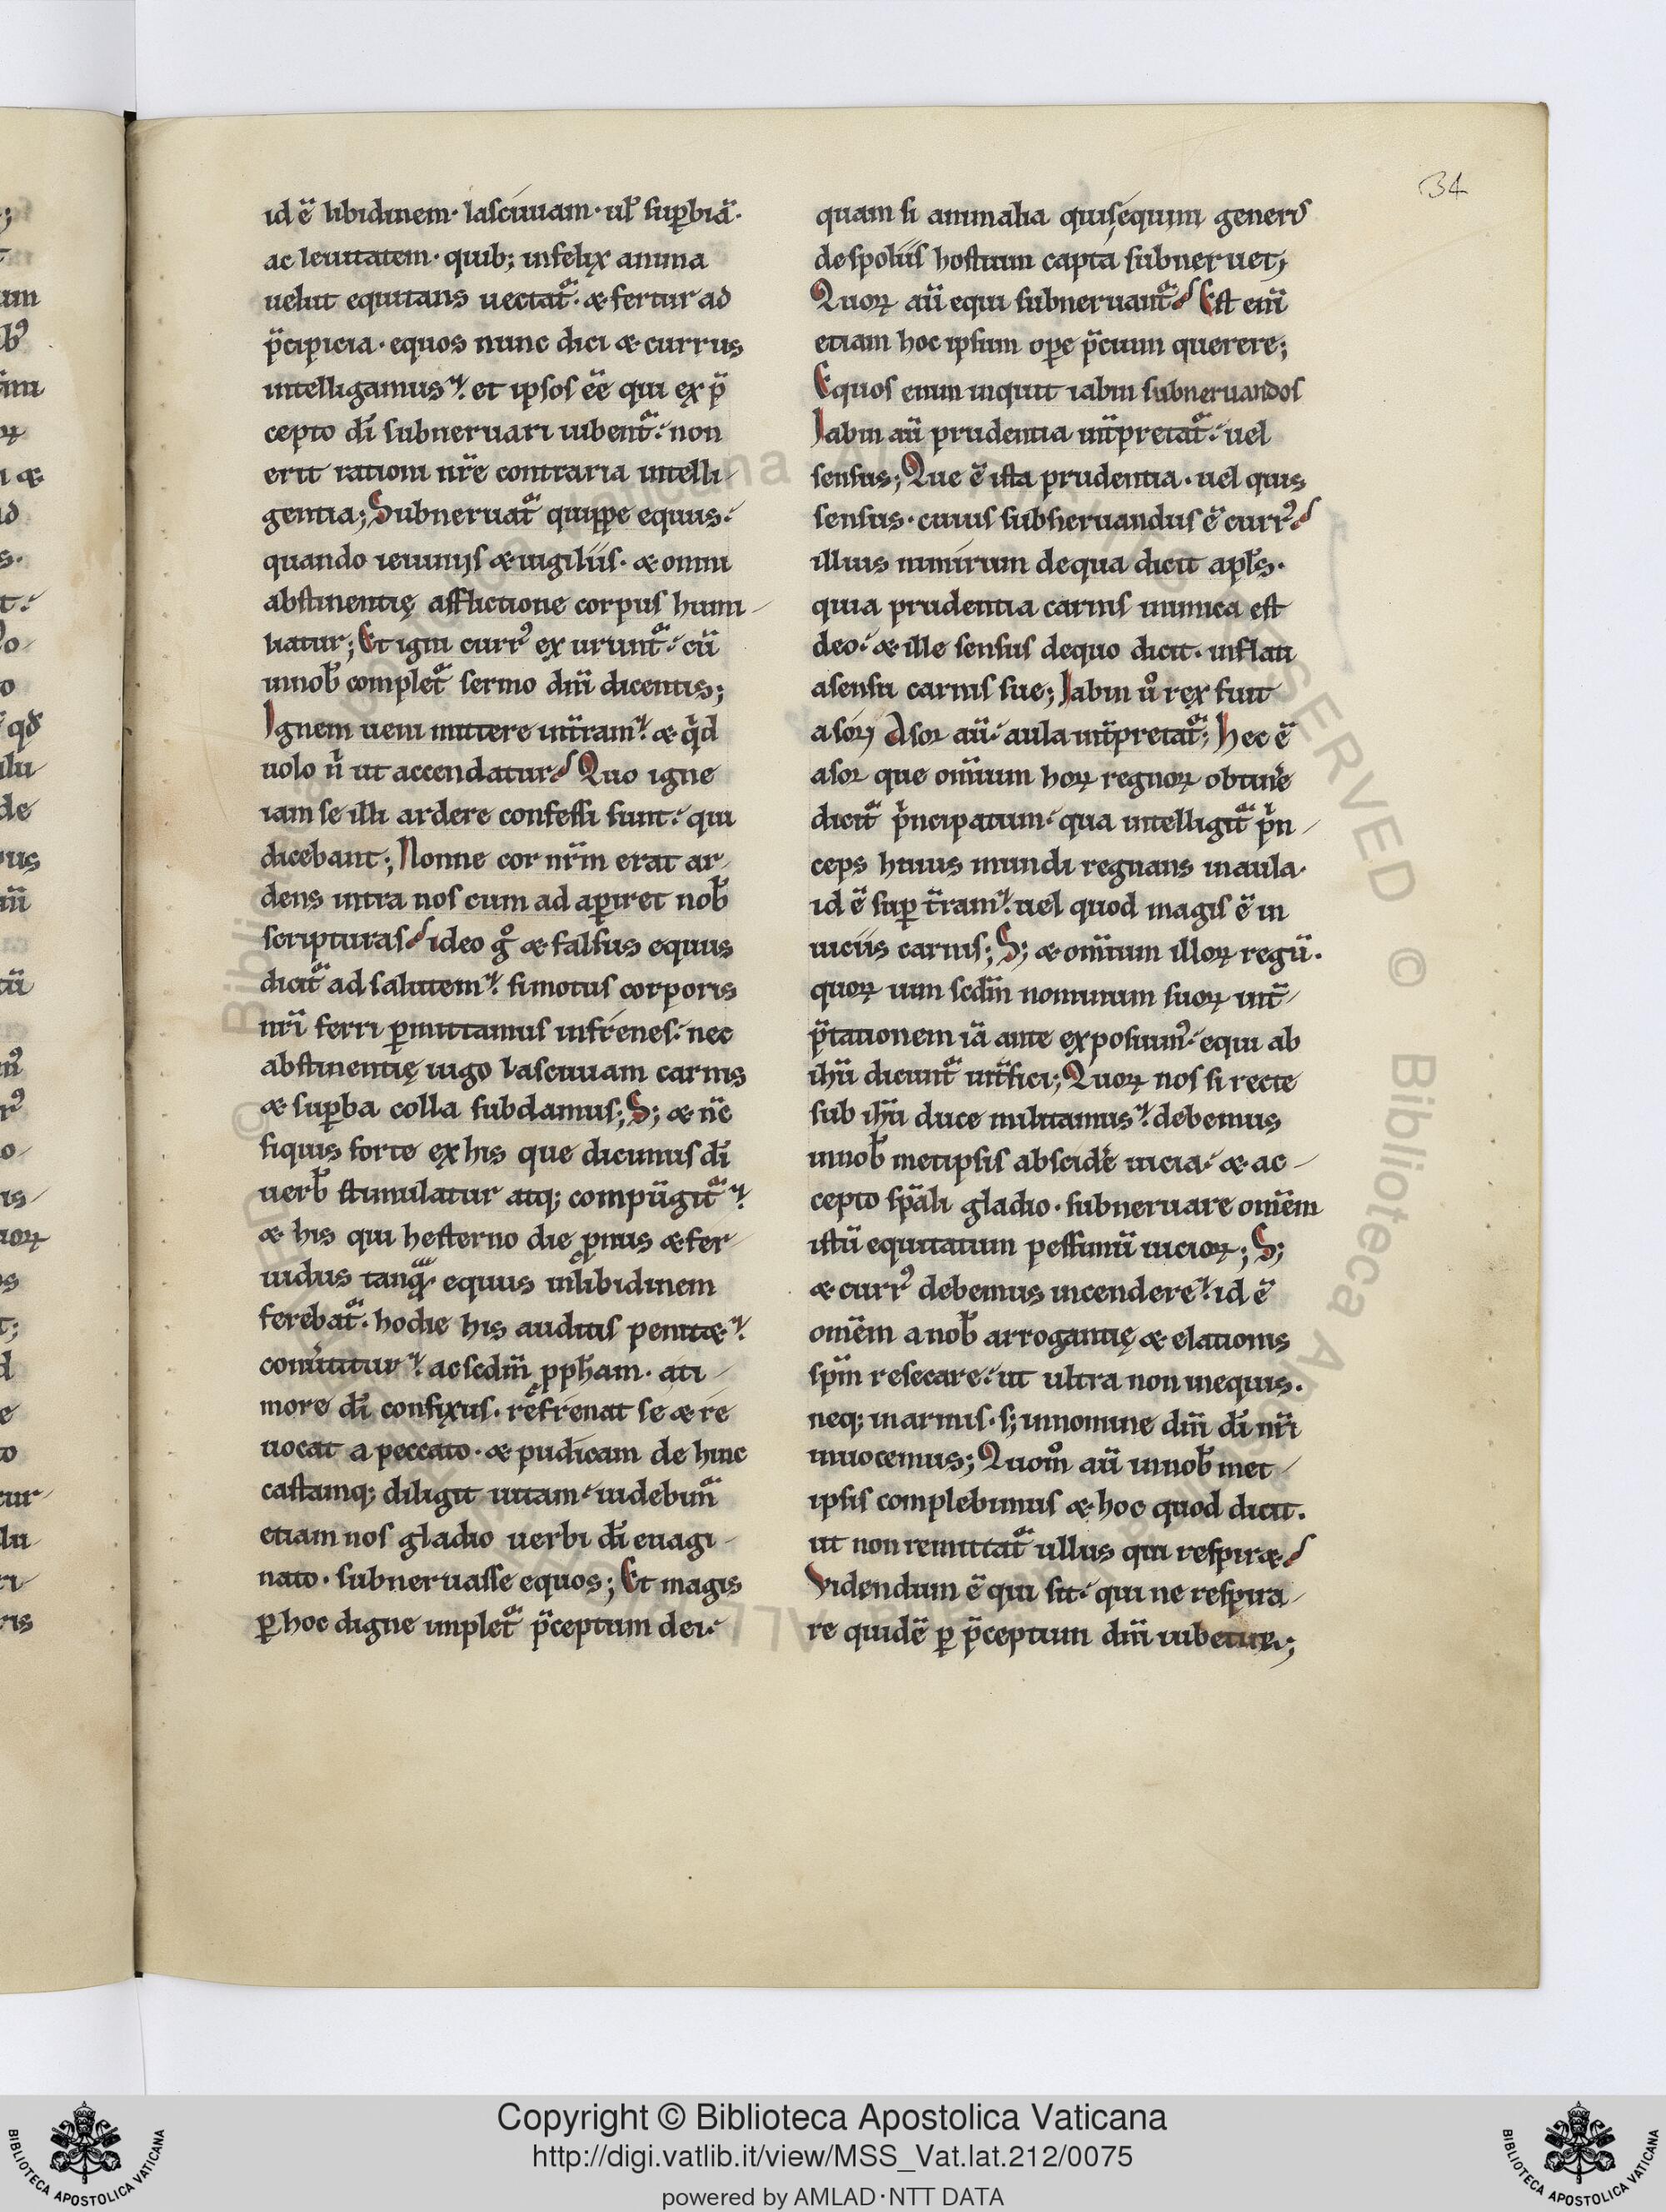 34
id ē libidinem· lasciuiam· ul̄ sup̄biā·
ac leuitatem· quib; infelix anima
uelut equitans uectat᷑· & fertur ad
p̄cipicia· equos nunc dici & currus
intelligamus· et ipsos ēē qui ex p̄
cepto dī subneruari iubent᷑· non
erit rationi nr̄e contraria intelli-
gentia; Subneruat᷑ quippe equus·
quando ieiuniis & uigiliis· & omni
abstinentię afflictione corpus humi-
liatur; Et igni curr᷒ ex urunt᷑· cū
in nob̄ complet᷑ sermo dn̄i dicentis;
Ignem ueni mittere in t̄ram· & qͥd
uolo n̄ ut accendatur? Quo igne
iam se illi ardere confessi sunt· qui
dicebant; Nonne cor nr̄m erat ar-
dens intra nos cum ad aperiret nob̄
scripturas? ideo gͦ & falsus equus
dicit᷑ ad salutem· si motus corporis
nr̄i ferri p̱mittamus infrenes· nec
abstinentię iugo lasciuiam carnis
& sup̱ba colla subdamus; S; & nc̄
siquis forte ex his que dicimus dī
uerb̄ stimulatur atq; compūgit᷑
& his qui hesterno die p̱nus & fer-
uidus tanquā equus in libidinem
ferebat᷑· hodie his auditis penit&·
conūtitur· ac scdm̄ ꝓph̄am· a ti-
more dī confixus· refrenat se & re
uocat a peccato· & pudicam de hinc
castamq; diligit uitam· uidebim᷑
etiam nos gladio uerbi dī euagi-
nato· subneruasse equos; Et magis
p̱ hoc digne implet᷑ p̄ceptum dei·
quam si animalia quisequum generis
de spoliis hostium capta subneruet;
Quoꝝ aū equi subneruant᷑? Est enī
etiam hoc ipsum ope p̄cium querere;
Equos enim inquit iabin subneruandos
Iabin aū prudentia int̄pretat᷑· uel
sensus; Que ē ista prudentia· uel quis
sensus· cuius subneruandus ē curr᷒?
illius nimirum de qua dicit apl̄s·
quia prudentia carnis inimica est
deo· & ille sensus de quo dicit· inflati
a sensu carnis sue; Iabin uͦ rex fuit
asor; Asor aū· aula int̄pretat᷑; Hec ē
asor que omīum hoꝝ regnoꝝ obtinēe
dicit᷑ pͥncipatum· qua intelligit᷑ pͥn-
ceps huius mundi regnans in aula·
id ē sup̱ t̄ram· uel quod magis ē in
uiciis carnis; S; & omīum illoꝝ regū·
quoꝝ uim scdm̄ nominum suoꝝ int̄-
p̄tationem iā ante exposuim᷒· equi ab
ihū dicunt᷑ int̄fici; Quoꝝ nos si recte
sub ihū duce militamus· debemus
in nob̄ metipsis abscidēe uicia· & ac-
cepto sp̄ali gladio· subneruare omēm
istū equitatum pessimū uicioꝝ; S;
& curr᷒ debemus incendere· id ē
omēm a nob̄ arrogantię & elationis
sp̄m resecare· ut ultra non in equis·
neq; in armis· s; in nomine dn̄i dī nr̄i
inuocemus; Quomͦ aū in nob̄ met-
ipsis complebimus & hoc quod dicit·
ut non remittat᷑ ullus qui respir&?
Videndum ē qui sit· qui ne respira-
re quidē p̱ p̄ceptum dn̄i iubetur;
Copyright © Biblioteca Apostolica Vaticana
http://digi.vatlib.it/view/MSS_Vat.lat.212/0075
powered by AMLAD·NTT DATA
BIBLIOTECA APOSTOLICA VATICANA
BIBLIOTECA APOSTOLICA VATICANA